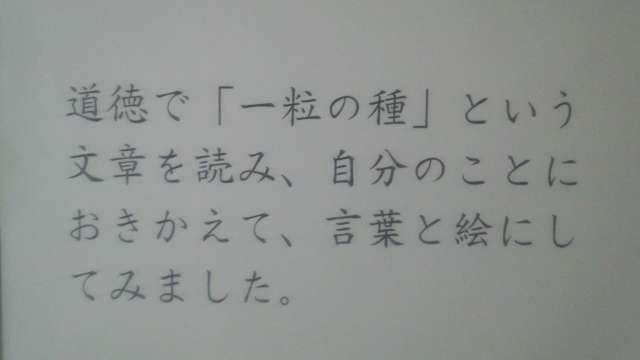 道徳で「一粒の種」という
文章を読み、自分のことに
おきかえて、言葉と絵にし
てみました。